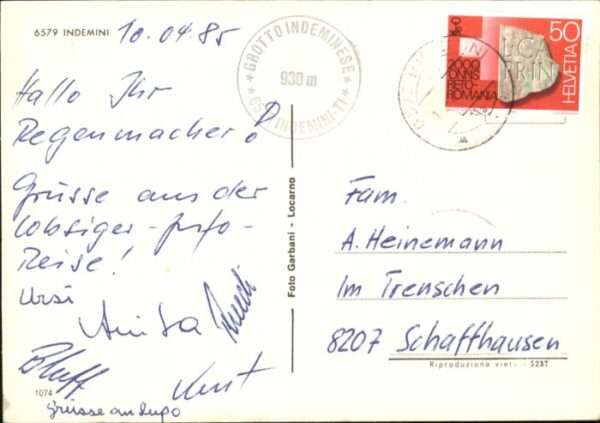 6579 INDEMINI
10.04.85
Hallo Ihr
Regenmacher!
Grüsse aus der
Reise!
Ursi
Anita Ruedi
Kurt
1074
Grüsse an Lupo
★ GROTTO INDEMINESE ★
930 m
6579 INDEMINI-TI
Foto Garbani - Locarno
50
HELVETIA
2000
ONNS
RETO-
ROMANIA
Fam.
A. Heinemann
Im Trenschen
8207 Schaffhausen
Riproduzione